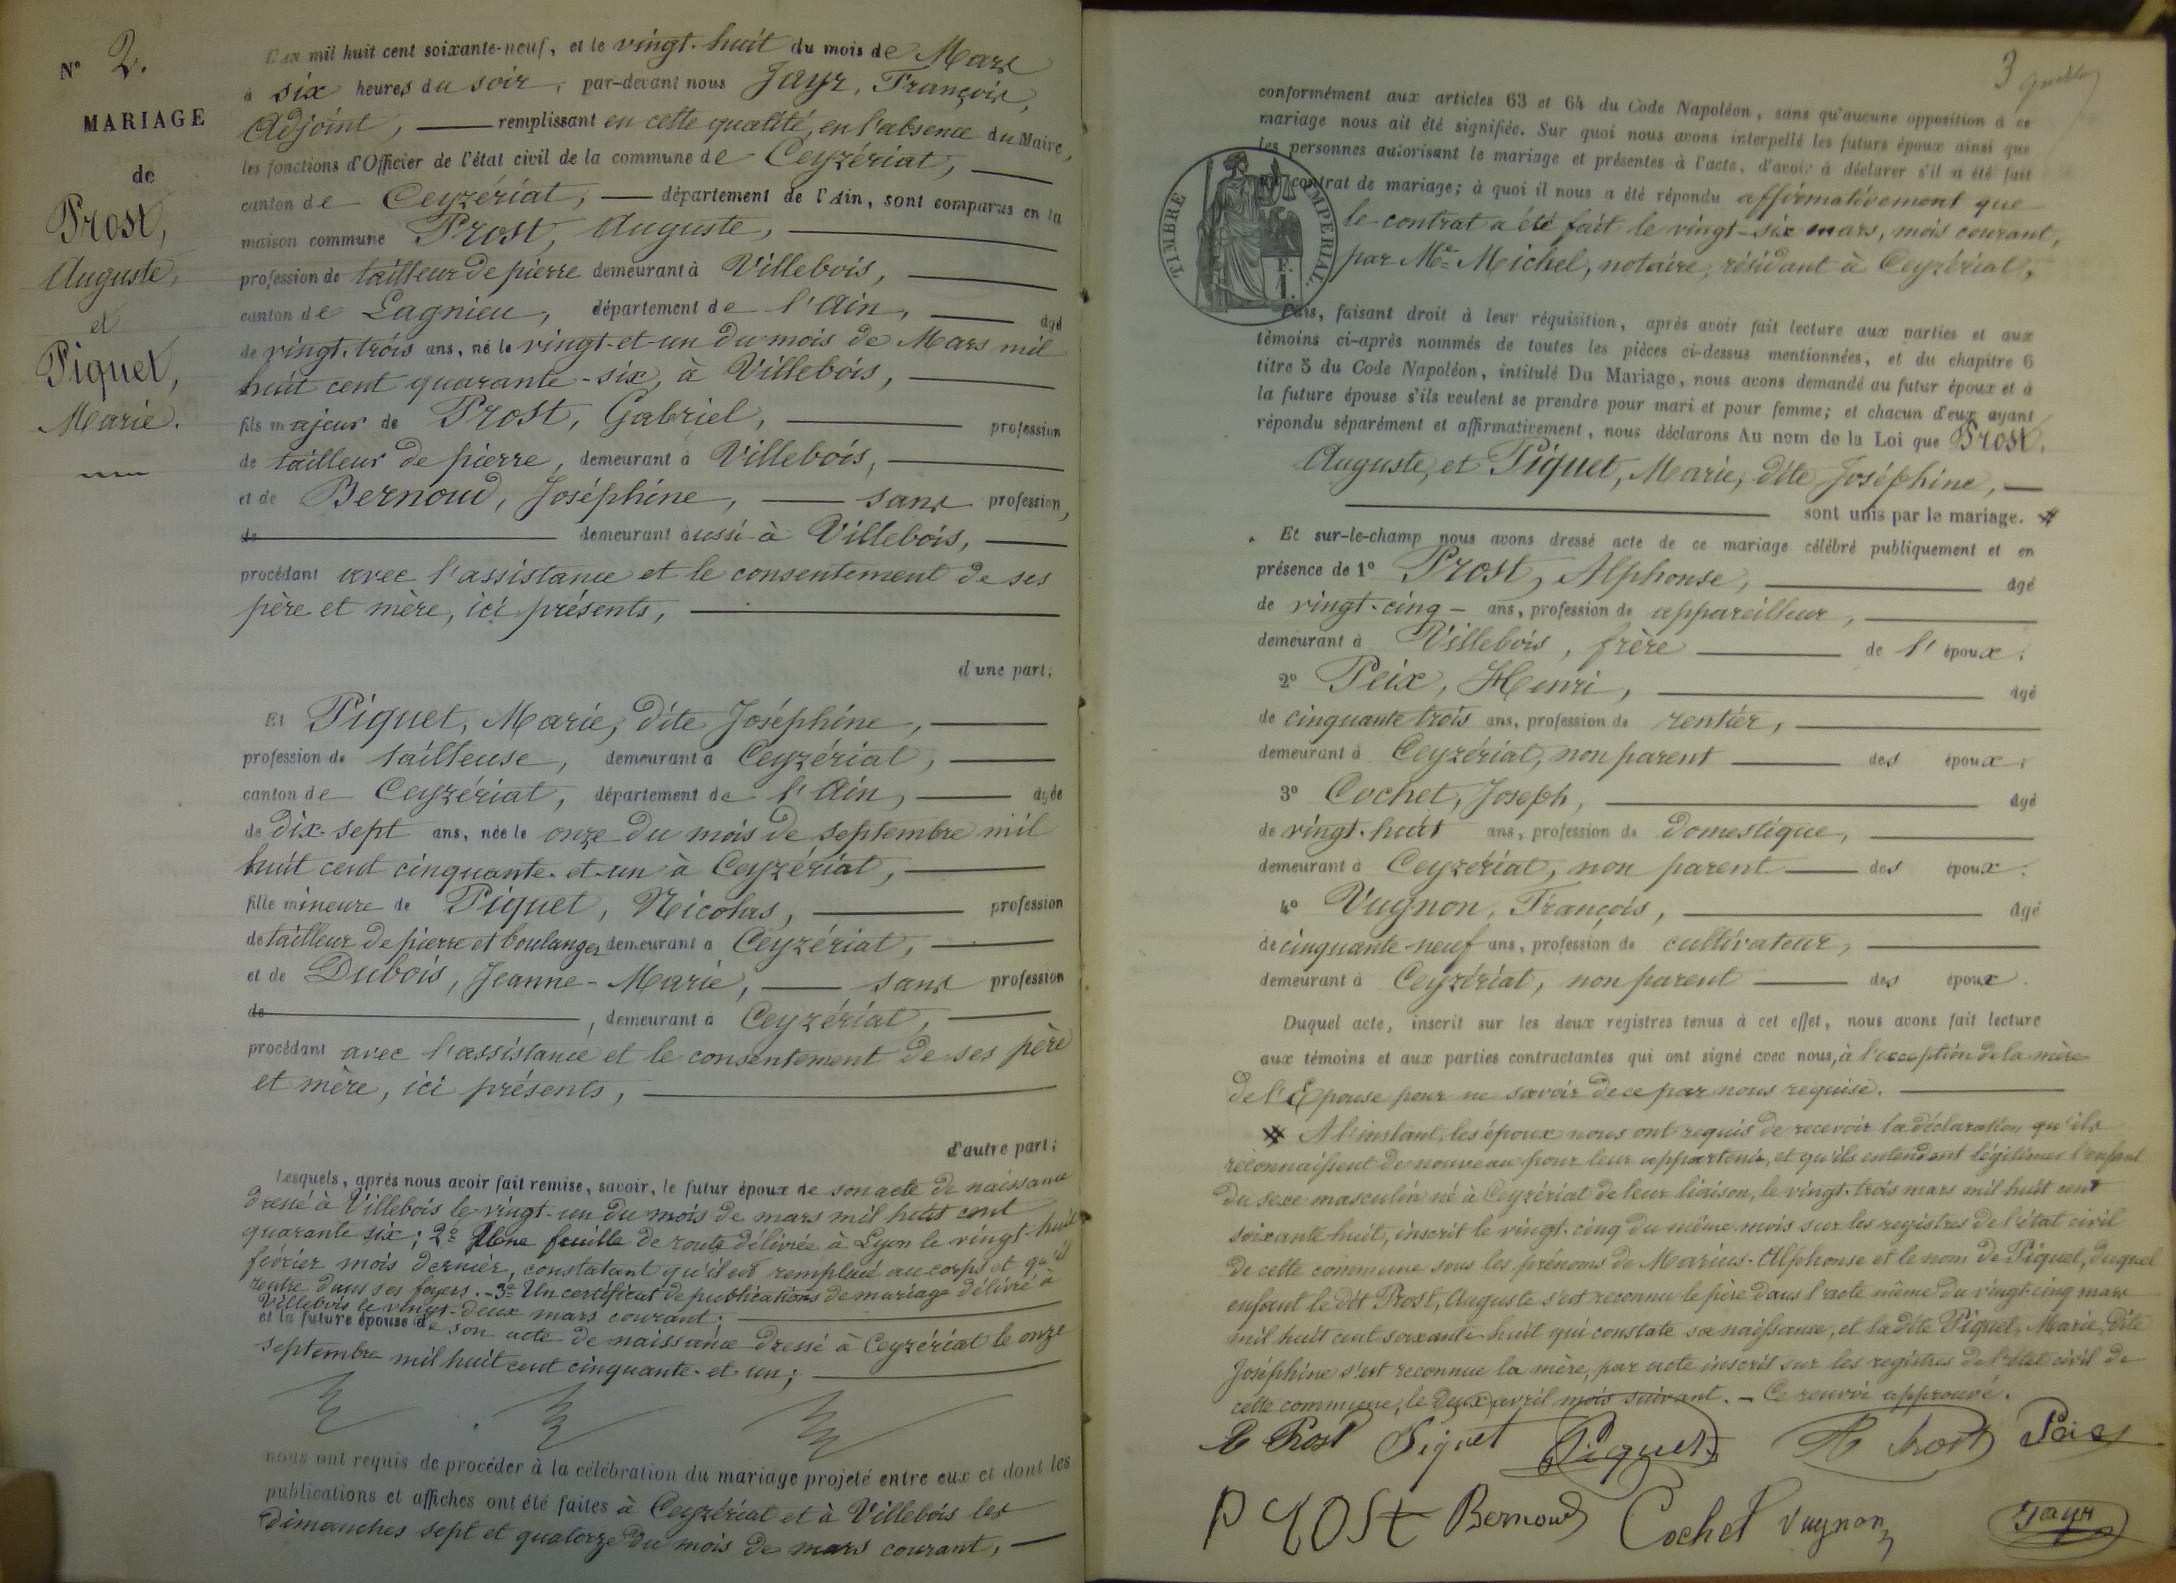 N° 2.
MARIAGE
de
Prost,
Auguste,
et
Piquet,
Marie.
L'an mil huit cent soixante-neuf, et le vingt-huit du mois de Mars
à six heures du soir, par-devant nous Jayr, François,
Adjoint, remplissant en cette qualité, en l'absence du Maire,
les fonctions d'Officier de l'état civil de la commune de Ceyzériat,
canton de Ceyzériat, département de l'Ain, sont comparus en la
maison commune Prost, Auguste,
profession de tailleur de pierre demeurant à Villebois,
canton de Lagnieu, département de l'Ain, âgé
de vingt-trois ans, né le vingt-et-un du mois de Mars mil
huit cent quarante-six, à Villebois,
fils majeur de Prost, Gabriel, profession
de tailleur de pierre, demeurant à Villebois,
et de Bernoud, Joséphine, sans profession,
de demeurant aussi à Villebois,
procédant avec l'assistance et le consentement de ses
père et mère, ici présents,
d'une part;
Et Piquet, Marie, dite Joséphine,
profession de tailleuse, demeurant à Ceyzériat,
canton de Ceyzériat, département de l'Ain, âgée
de dix-sept ans, née le onze du mois de septembre mil
huit cent cinquante-et-un à Ceyzériat,
fille mineure de Piquet, Nicolas, profession
de tailleur de pierre et boulanger demeurant à Ceyzériat,
et de Dubois, Jeanne-Marie, sans profession
de , demeurant à Ceyzériat,
procédant avec l'assistance et le consentement de ses père
et mère, ici présents,
d'autre part;
Lesquels, après nous avoir fait remise, savoir, le futur époux de son acte de naissance
dressé à Villebois le vingt-un du mois de mars mil huit cent
quarante six; 2° Une feuille de route délivrée à Lyon le vingt-huit
février mois dernier, constatant qu'il est remplacé au corps et qu'il
rentre dans ses foyers. - 3° Un certificat de publications de mariage délivré à
Villebois le vingt-deux mars courant;
et la future épouse de son acte de naissance dressé à Ceyzériat le onze
septembre mil huit cent cinquante-et-un;
nous ont requis de procéder à la célébration du mariage projeté entre eux et dont les
publications et affiches ont été faites à Ceyzériat et à Villebois les
dimanches sept et quatorze du mois de mars courant,
3
conformément aux articles 63 et 64 du Code Napoléon, sans qu'aucune opposition à ce
mariage nous ait été signifiée. Sur quoi nous avons interpellé les futurs époux ainsi que
les personnes autorisant le mariage et présentes à l'acte, d'avoir à déclarer s'il a été fait
un contrat de mariage; à quoi il nous a été répondu affirmativement que
le contrat a été fait le vingt-six mars, mois courant,
par Me Michel, notaire, résidant à Ceyzériat,
TIMBRE IMPERIAL
Puis, faisant droit à leur réquisition, après avoir fait lecture aux parties et aux
témoins ci-après nommés de toutes les pièces ci-dessus mentionnées, et du chapitre 6
titre 5 du Code Napoléon, intitulé Du Mariage, nous avons demandé au futur époux et à
la future épouse s'ils veulent se prendre pour mari et pour femme; et chacun d'eux ayant
répondu séparément et affirmativement, nous déclarons Au nom de la Loi que Prost,
Auguste, et Piquet, Marie, dite Joséphine,
sont unis par le mariage. #
Et sur-le-champ nous avons dressé acte de ce mariage célébré publiquement et en
présence de 1° Prost, Alphonse, âgé
de vingt-cinq ans, profession de appareilleur,
demeurant à Villebois, frère de l'époux.
2° Peix, Henri, âgé
de cinquante trois ans, profession de rentier,
demeurant à Ceyzériat, non parent des époux.
3° Cochet, Joseph, âgé
de vingt-huit ans, profession de domestique,
demeurant à Ceyzériat, non parent des époux.
4° Vuynon, François, âgé
de cinquante-neuf ans, profession de cultivateur,
demeurant à Ceyzériat, non parent des époux.
Duquel acte, inscrit sur les deux registres tenus à cet effet, nous avons fait lecture
aux témoins et aux parties contractantes qui ont signé avec nous, à l'exception de la mère
de l'Epouse pour ne savoir de ce par nous requise.
# A l'instant, les époux nous ont requis de recevoir la déclaration qu'ils
reconnaissent de nouveau pour leur appartenir, et qu'ils entendent légitimer l'enfant
du sexe masculin né à Ceyzériat de leur liaison, le vingt-trois mars mil huit cent
soixante-huit, inscrit le vingt-cinq du même mois sur les registres de l'état civil
de cette commune sous les prénoms de Marius-Alphonse et le nom de Piquet, duquel
enfant le dit Prost, Auguste s'est reconnu le père dans l'acte même du vingt-cinq mars
mil huit cent soixante-huit qui constate sa naissance, et la dite Piquet, Marie, dite
Joséphine s'est reconnue la mère, par acte inscrit sur les registres de l'état civil de
cette commune, le deux avril mois suivant. - Ce renvoi approuvé.
Prost Piquet Piquet Prost Peix
Prost Bernoud Cochet Vuynon Jayr